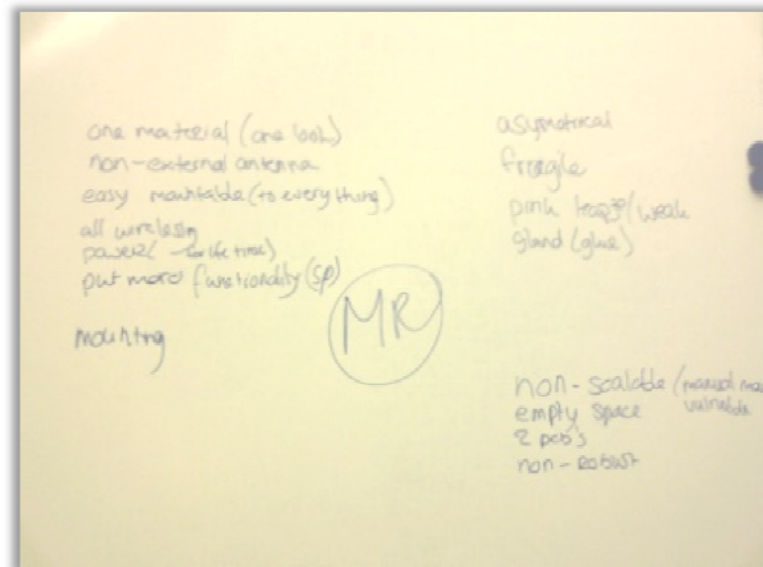 one material (one look)
non-external antenna
easy mountable (to everything)
all wireless
power ( life time)
put more functionality (SP)
mounting
MR
asymetrical
fragile
pink weak
gland (glue)
non-scalable (manual
vulnerable
empty space
2 pcb's
non-robust